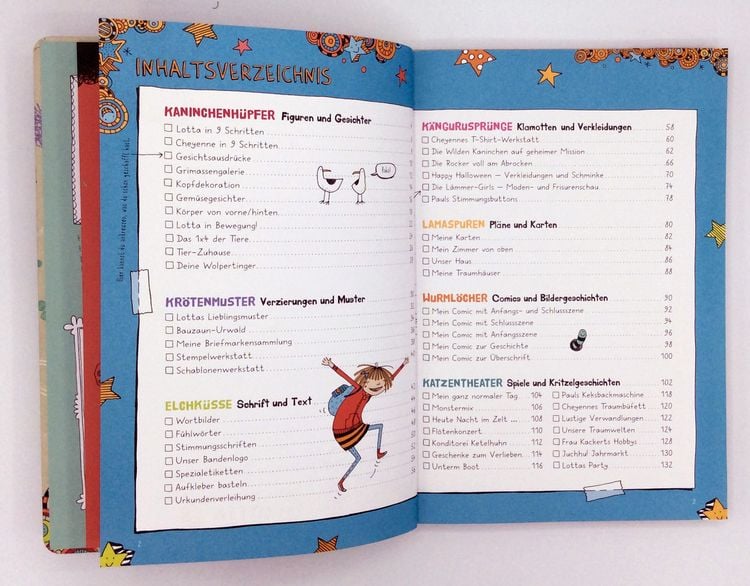 INHALTSVERZEICHNIS
KANINCHENHÜPFER Figuren und Gesichter
Lotta in 9 Schritten
Cheyenne in 9 Schritten
Gesichtsausdrücke
Grimassengalerie
Kopfdekoration
Gemüsegesichter
Körper von vorne/hinten
Lotta in Bewegung!
Das 1x4 der Tiere
Tier-Zuhause
Deine Wolpertinger
KRÖTENMUSTER Verzierungen und Muster
Lottas Lieblingsmuster
Bauzaun-Urwald
Meine Briefmarkensammlung
Stempelwerkstatt
Schablonenwerkstatt
ELCHKÜSSE Schrift und Text
Wortbilder
Fühlwörter
Stimmungsschriften
Unser Bandenlogo
Spezialetiketten
Aufkleber basteln
Urkundenverleihung
2
KÄNGURUSPRÜNGE Klamotten und Verkleidungen 58
Cheyennes T-Shirt-Werkstatt 60
Die Wilden Kaninchen auf geheimer Mission 62
Die Rocker voll am Abrocken 66
Happy Halloween – Verkleidungen und Schminke 70
Die Lämmer-Girls – Moden- und Frisurenschau 74
Pauls Stimmungsbuttons 78
LAMASPUREN Pläne und Karten 80
Meine Karten 82
Mein Zimmer von oben 84
Unser Haus 86
Meine Traumhäuser 88
WURMLÖCHER Comics und Bildergeschichten 90
Mein Comic mit Anfangs- und Schlussszene 92
Mein Comic mit Schlussszene 94
Mein Comic mit Anfangsszene 96
Mein Comic zur Geschichte 98
Mein Comic zur Überschrift 100
KATZENTHEATER Spiele und Kritzelgeschichten 102
Mein ganz normaler Tag 104
Monstermix 106
Heute Nacht im Zelt ... 108
Flötenkonzert 110
Konditorei Ketelhuhn 112
Geschenke zum Verlieben 114
Unterm Boot 116
Pauls Keksbackmaschine 118
Cheyennes Traumbüfett 120
Lustige Verwandlungen 122
Unsere Traumwelten 124
Frau Kackerts Hobbys 128
Juchhu! Jahrmarkt 130
Lottas Party 132